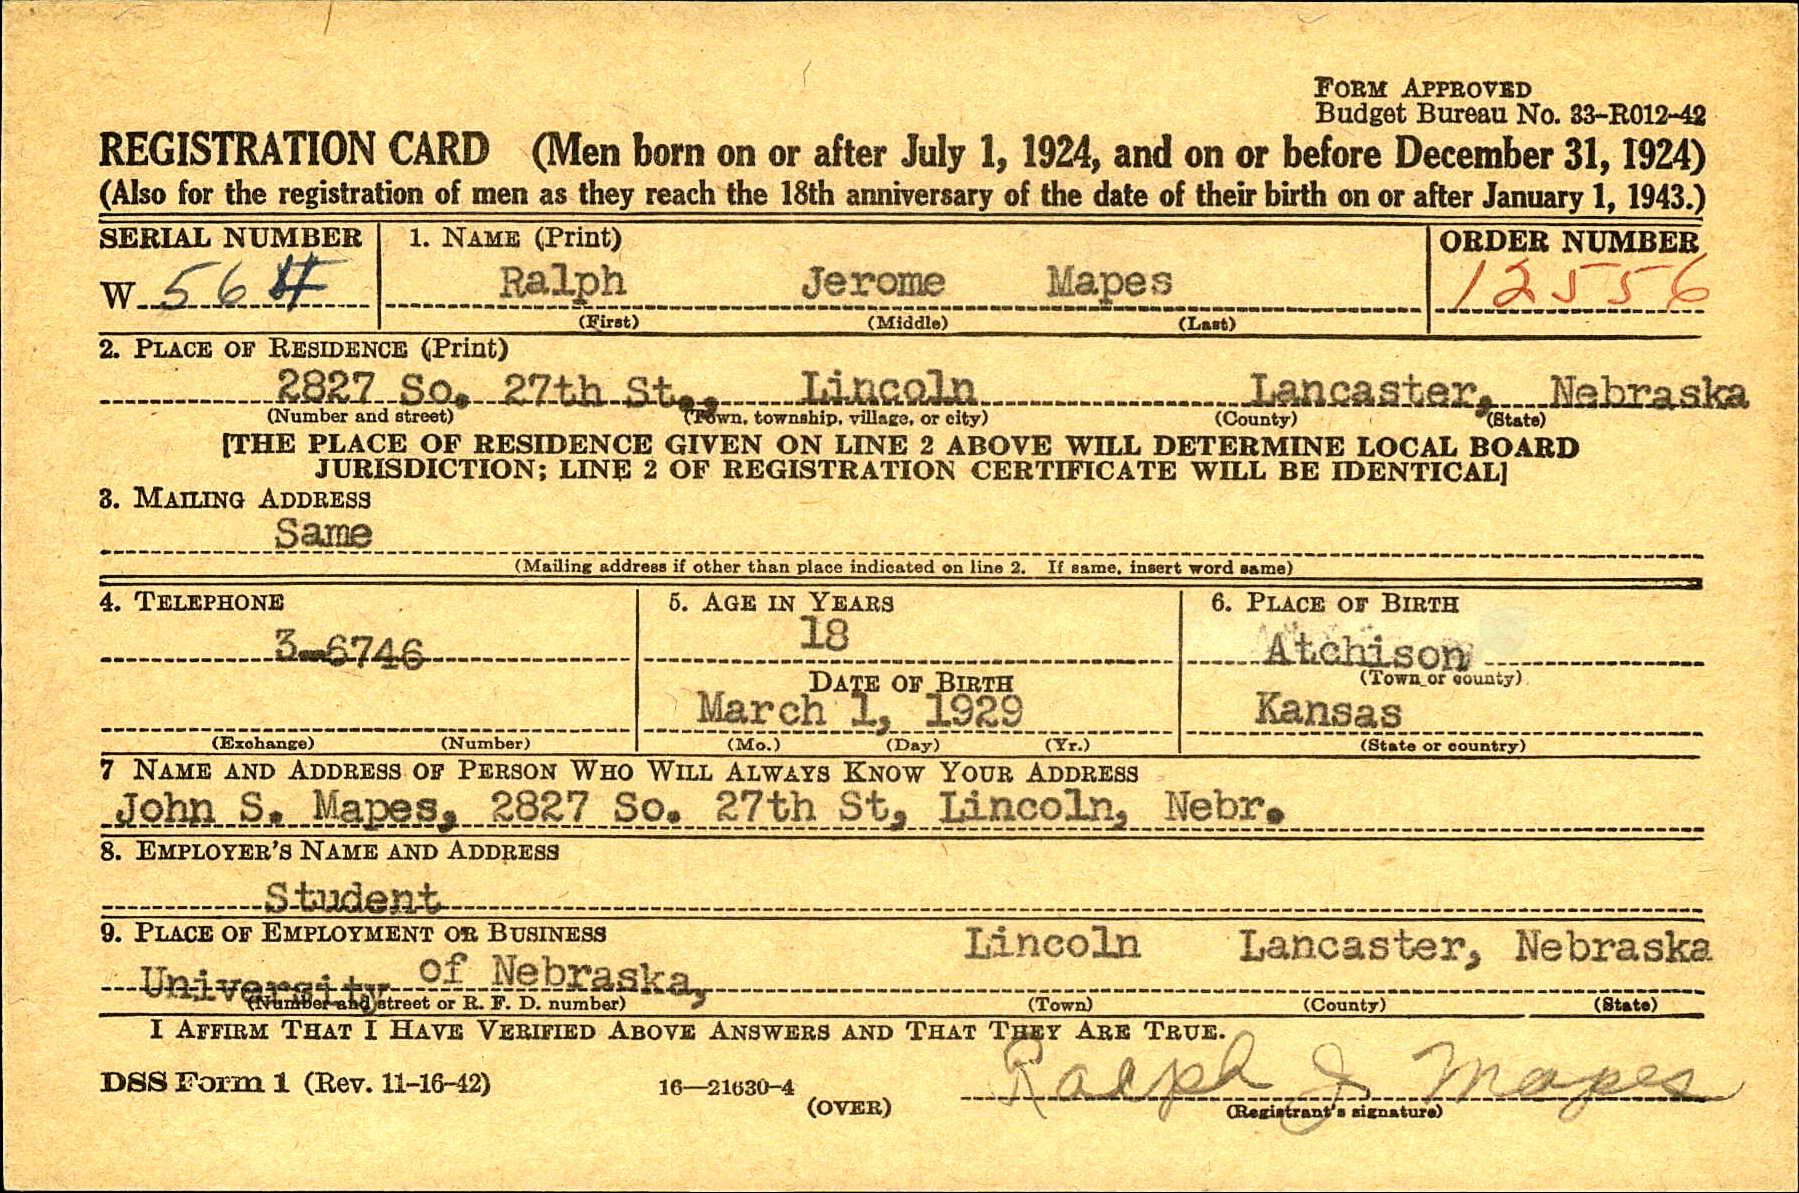 FORM APPROVED
Budget Bureau No. 33-R012-42
REGISTRATION CARD (Men born on or after July 1, 1924, and on or before December 31, 1924)
(Also for the registration of men as they reach the 18th anniversary of the date of their birth on or after January 1, 1943.)
SERIAL NUMBER 1. NAME (Print) ORDER NUMBER
W 564 Ralph Jerome Mapes 12556
(First) (Middle) (Last)
2. PLACE OF RESIDENCE (Print)
2827 So. 27th St., Lincoln Lancaster, Nebraska
(Number and street) (Town, township, village, or city) (County) (State)
[THE PLACE OF RESIDENCE GIVEN ON LINE 2 ABOVE WILL DETERMINE LOCAL BOARD
JURISDICTION; LINE 2 OF REGISTRATION CERTIFICATE WILL BE IDENTICAL]
3. MAILING ADDRESS
Same
(Mailing address if other than place indicated on line 2. If same, insert word same)
4. TELEPHONE 5. AGE IN YEARS 6. PLACE OF BIRTH
3-6746 18 Atchison
(Town or county)
DATE OF BIRTH
March 1, 1929 Kansas
(Exchange) (Number) (Mo.) (Day) (Yr.) (State or country)
7 NAME AND ADDRESS OF PERSON WHO WILL ALWAYS KNOW YOUR ADDRESS
John S. Mapes, 2827 So. 27th St, Lincoln, Nebr.
8. EMPLOYER'S NAME AND ADDRESS
Student
9. PLACE OF EMPLOYMENT OR BUSINESS
University of Nebraska, Lincoln Lancaster, Nebraska
(Number and street or R. F. D. number) (Town) (County) (State)
I AFFIRM THAT I HAVE VERIFIED ABOVE ANSWERS AND THAT THEY ARE TRUE.
DSS Form 1 (Rev. 11-16-42) 16—21630-4 Ralph J Mapes
(OVER) (Registrant's signature)